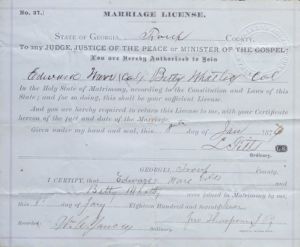 No. 37.
MARRIAGE LICENSE.
STATE OF GEORGIA, Troup COUNTY.
To any JUDGE, JUSTICE OF THE PEACE or MINISTER OF THE GOSPEL:
You are Hereby Authorized to Join
Edward Ware (Col) Betty Whatley Col
In the Holy State of Matrimony, according to the Constitution and Laws of this
State; and for so doing, this shall be your sufficient License.
And you are hereby required to return this License to me, with your Certificate
hereon of the fact and date of the Marriage.
Given under my hand and seal, this day of Jan 187
Ordinary.
GEORGIA, Troup County,
I CERTIFY, that Edward Ware Col
and Betty Whatley were joined in Matrimony by me,
this day of Jany Eighteen Hundred and Seventy
Recorded